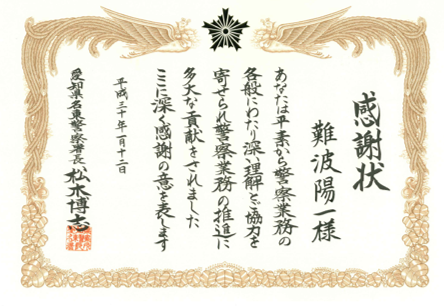 感謝状
難波陽一様
あなたは平素から警察業務の
各般にわたり深い理解と協力を
寄せられ警察業務の推進に
多大な貢献をされました
ここに深く感謝の意を表します
平成三十年一月十二日
愛知県名東警察署長 松木博志